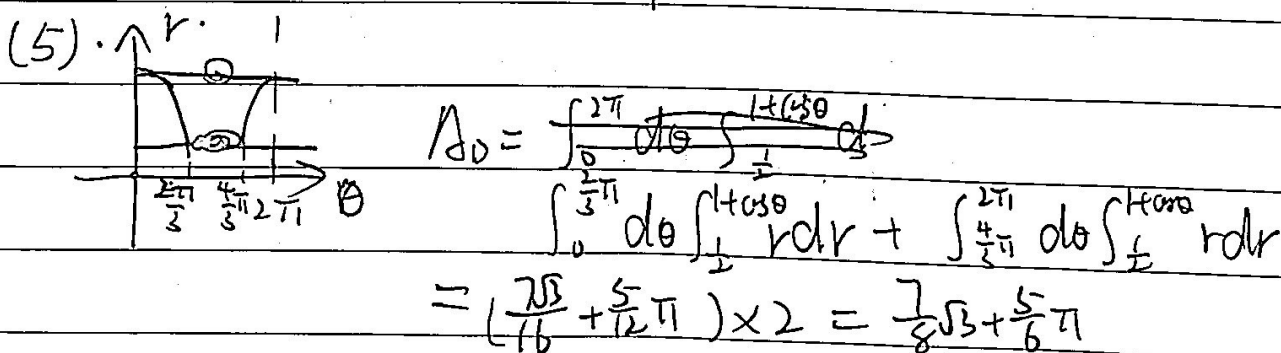 (5).
r.
2π/3 4π/3 2π θ
A_D = ∫_0^{2π} dθ ∫_{1/2}^{1+cosθ} d
∫_0^{2/3 π} dθ ∫_{1/2}^{1+cosθ} rdr + ∫_{4/3 π}^{2π} dθ ∫_{1/2}^{1+cosθ} rdr
= (7√3/16 + 5/12 π) × 2 = 7/8 √3 + 5/6 π